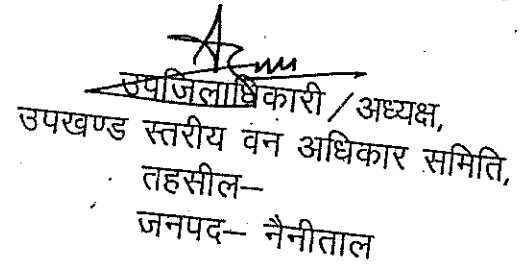 उपजिलाधिकारी / अध्यक्ष,
उपखण्ड स्तरीय वन अधिकार समिति,
तहसील–
जनपद– नैनीताल